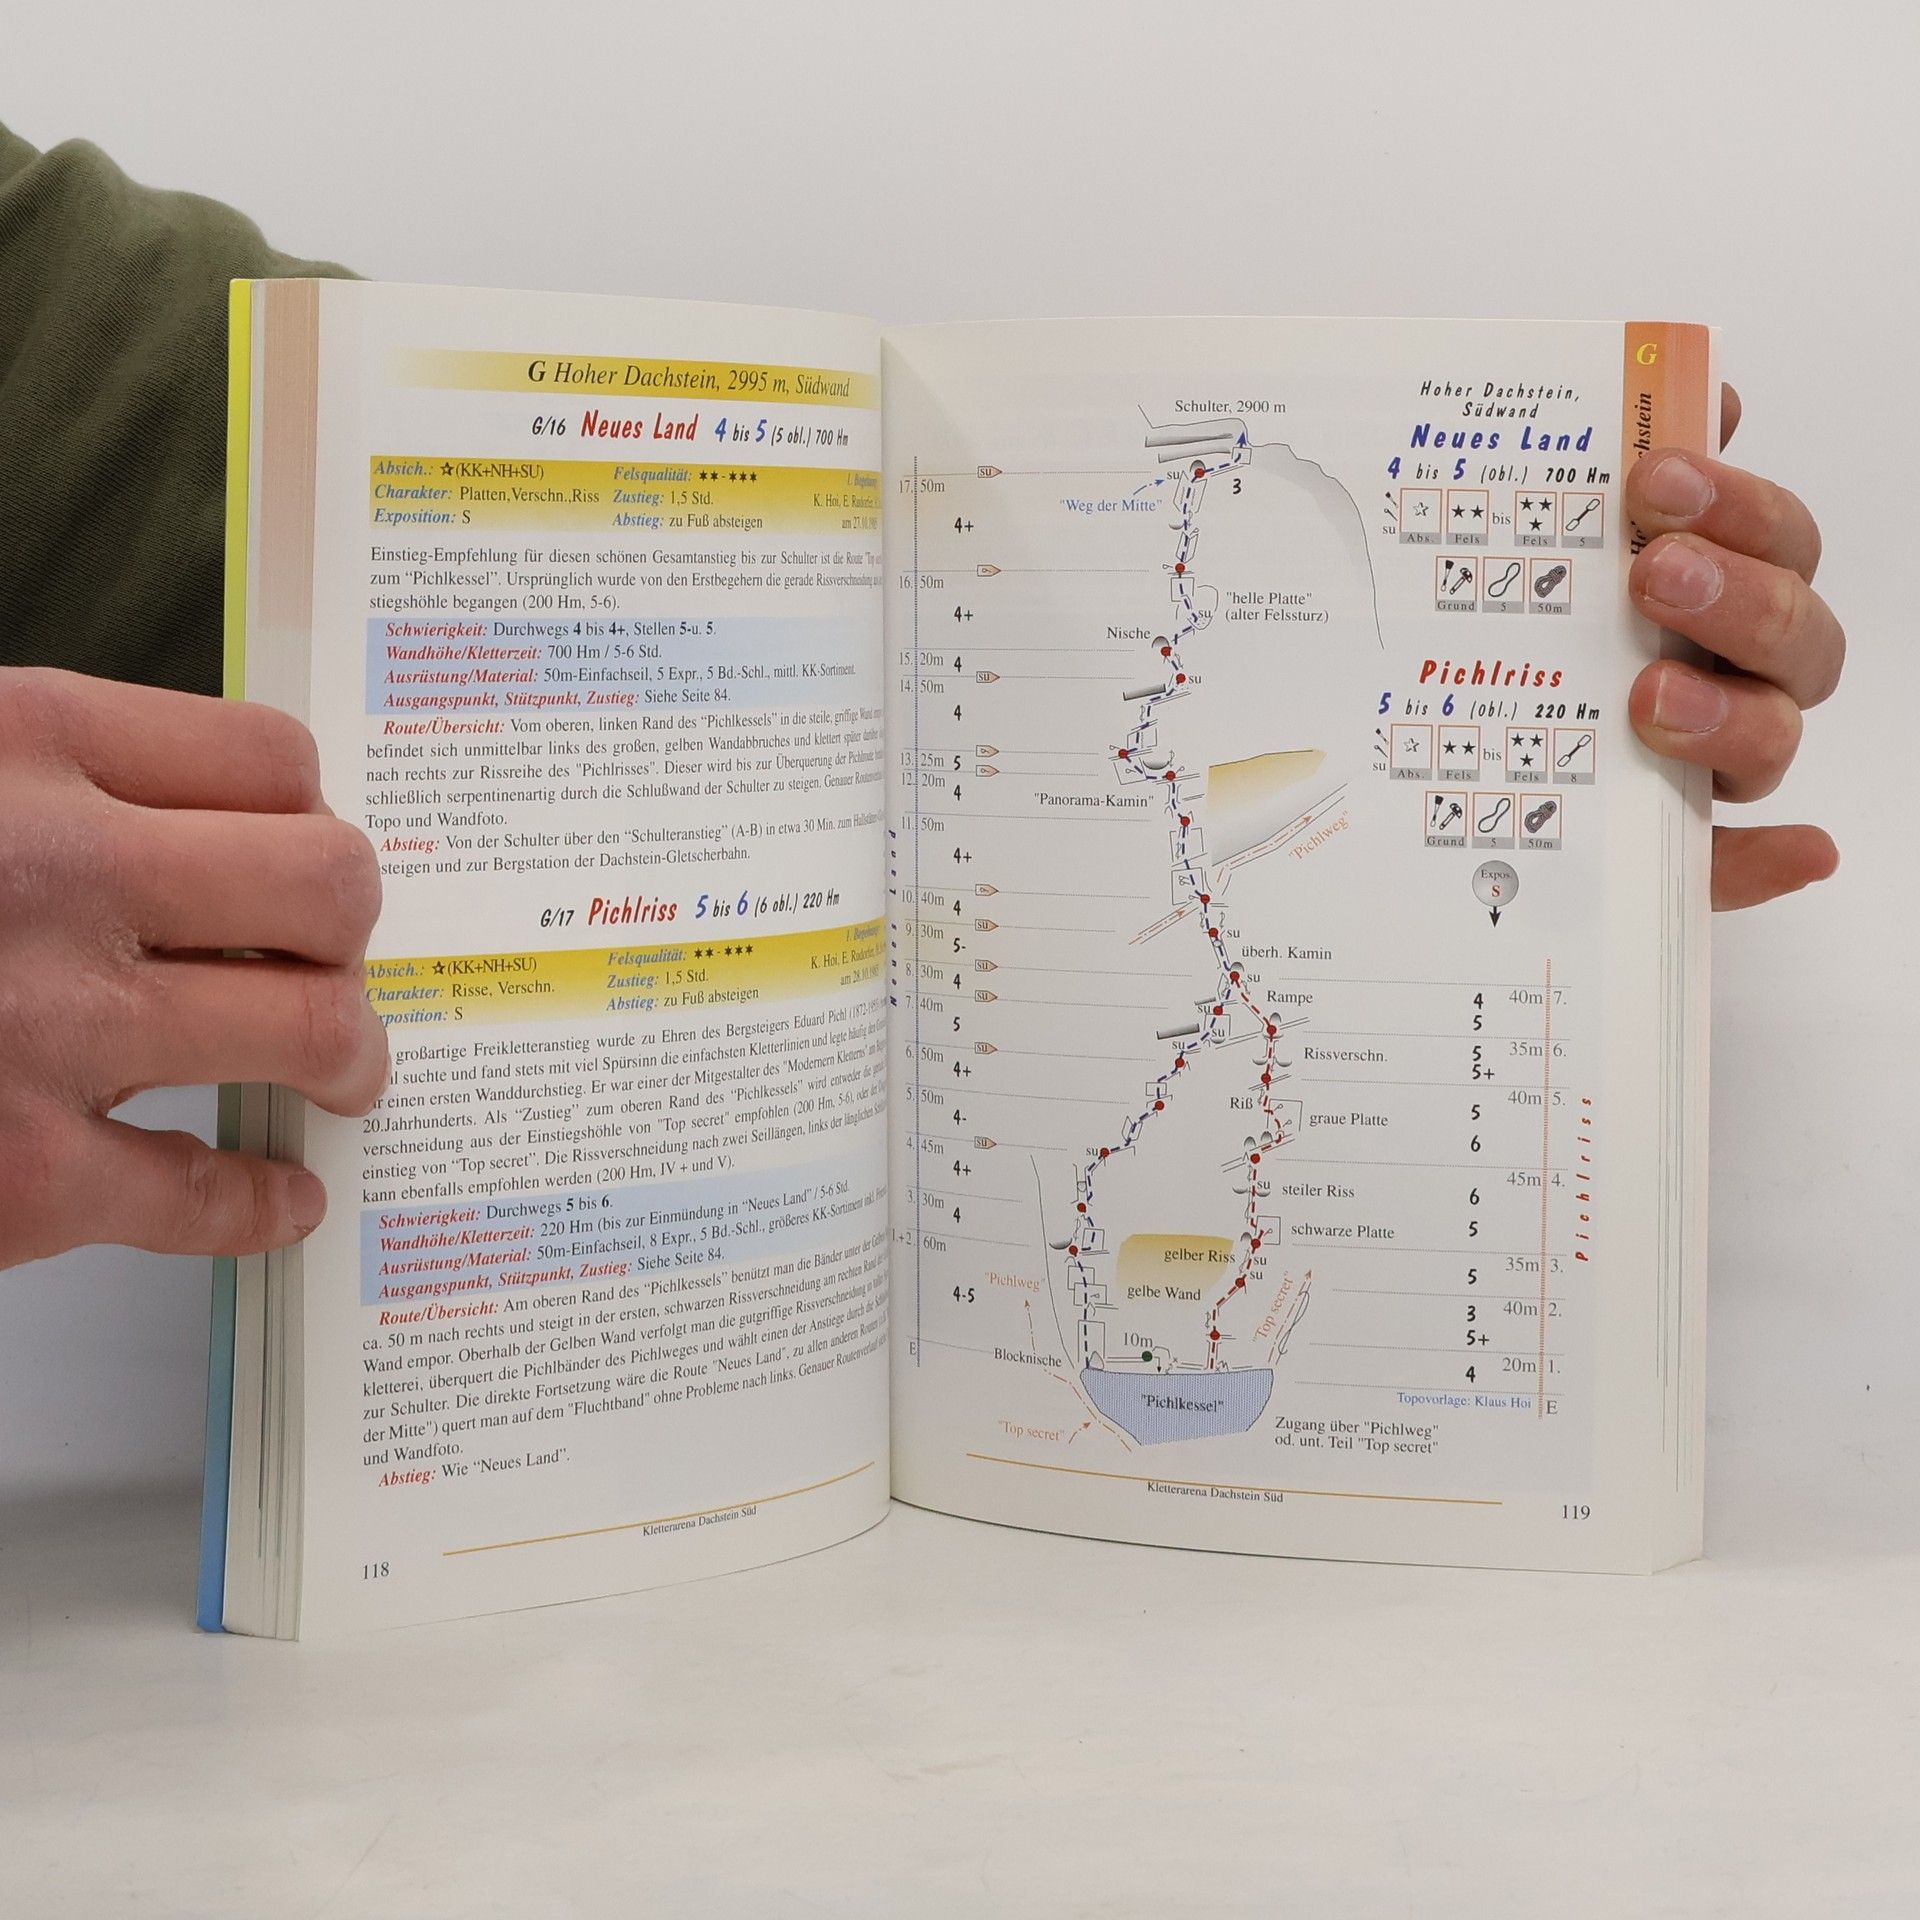 G Hoher Dachstein, 2995 m, Südwand
G/16 Neues Land 4 bis 5 (5 obl.) 700 Hm
Absich.: ☆(KK+NH+SU)
Charakter: Platten,Verschn.,Riss
Exposition: S
Felsqualität: ★★-★★★
Zustieg: 1,5 Std.
Abstieg: zu Fuß absteigen
1. Begehung:
K. Hoi, E. Rudorfer,
am 27.10.1985
Einstieg-Empfehlung für diesen schönen Gesamtanstieg bis zur Schulter ist die Route "Top
zum “Pichlkessel”. Ursprünglich wurde von den Erstbegehern die gerade Rissverschneidung
stiegshöhle begangen (200 Hm, 5-6).
Schwierigkeit: Durchwegs 4 bis 4+, Stellen 5-u. 5.
Wandhöhe/Kletterzeit: 700 Hm / 5-6 Std.
Ausrüstung/Material: 50m-Einfachseil, 5 Expr., 5 Bd.-Schl., mittl. KK-Sortiment.
Ausgangspunkt, Stützpunkt, Zustieg: Siehe Seite 84.
Route/Übersicht: Vom oberen, linken Rand des “Pichlkessels” in die steile, griffige Wand
befindet sich unmittelbar links des großen, gelben Wandabbruches und klettert später
nach rechts zur Rissreihe des "Pichlrisses". Dieser wird bis zur Überquerung der Pichlroute
schließlich serpentinenartig durch die Schlußwand der Schulter zu steigen. Genauer
Topo und Wandfoto.
Abstieg: Von der Schulter über den “Schulteranstieg” (A-B) in etwa 30 Min. zum
steigen und zur Bergstation der Dachstein-Gletscherbahn.
G/17 Pichlriss 5 bis 6 (6 obl.) 220 Hm
Absich.: ☆(KK+NH+SU)
Charakter: Risse, Verschn.
xposition: S
Felsqualität: ★★-★★★
Zustieg: 1,5 Std.
Abstieg: zu Fuß absteigen
1. Begehung:
K. Hoi, E. Rudorfer,
am 28.10.1985
großartige Freikletteranstieg wurde zu Ehren des Bergsteigers Eduard Pichl
suchte und fand stets mit viel Spürsinn die einfachsten Kletterlinien und legte häufig den
einen ersten Wanddurchstieg. Er war einer der Mitgestalter des "Modernen Kletterns" am
20.Jahrhunderts. Als “Zustieg” zum oberen Rand des “Pichlkessels” wird entweder die
verschneidung aus der Einstiegshöhle von "Top secret" empfohlen (200 Hm, 5-6), oder der
einstieg von “Top secret”. Die Rissverschneidung nach zwei Seillängen, links der länglichen
kann ebenfalls empfohlen werden (200 Hm, IV + und V).
Schwierigkeit: Durchwegs 5 bis 6.
Wandhöhe/Kletterzeit: 220 Hm (bis zur Einmündung in “Neues Land” / 5-6 Std.
Ausrüstung/Material: 50m-Einfachseil, 8 Expr., 5 Bd.-Schl., größeres KK-Sortiment inkl.
Ausgangspunkt, Stützpunkt, Zustieg: Siehe Seite 84.
Route/Übersicht: Am oberen Rand des “Pichlkessels” benützt man die Bänder unter der Gelben
ca. 50 m nach rechts und steigt in der ersten, schwarzen Rissverschneidung am rechten Rand der
Wand empor. Oberhalb der Gelben Wand verfolgt man die gutgriffige Rissverschneidung in
kletterei, überquert die Pichlbänder des Pichlweges und wählt einen der Anstiege durch die
zur Schulter. Die direkte Fortsetzung wäre die Route "Neues Land", zu allen anderen Routen
der Mitte") quert man auf dem "Fluchtband" ohne Probleme nach links. Genauer Routenverlauf
und Wandfoto.
Abstieg: Wie “Neues Land”.
Kletterarena Dachstein Süd
118
Schulter, 2900 m
su
"Weg der Mitte"
3
su
17. 50m
4+
16. 50m
4+
"helle Platte"
(alter Felssturz)
su
Nische
15. 20m 4
su
su
14. 50m
4
13. 25m 5
12. 20m
4
"Panorama-Kamin"
11. 50m
4+
"Pichlweg"
10. 40m
4
su
su
9. 30m
5-
überh. Kamin
su
su
8. 30m
4
su
7. 40m
5
su
su
su
su
6. 50m
4+
5. 50m
4-
su
su
4. 45m
4+
3. 30m
4
1.+2. 60m
4-5
E
Neues Land
Rampe
Rissverschn.
Riß
graue Platte
su
steiler Riss
schwarze Platte
gelber Riss
su
su
gelbe Wand
"Pichlweg"
"Top secret"
10m
Blocknische
"Pichlkessel"
"Top secret"
Zugang über "Pichlweg"
od. unt. Teil "Top secret"
4 40m 7.
5
5 35m 6.
5+
40m 5.
5
6
45m 4.
6
5
35m 3.
5
3 40m 2.
5+
20m 1.
4
Topovorlage: Klaus Hoi
E
Pichlriss
Hoher Dachstein,
Südwand
Neues Land
4 bis 5 (obl.) 700 Hm
su
Abs.
Fels
bis
Fels
5
Grund
5
50m
Pichlriss
5 bis 6 (obl.) 220 Hm
su
Abs.
Fels
bis
Fels
8
Grund
5
50m
Expos.
S
G
chstein
Kletterarena Dachstein Süd
119